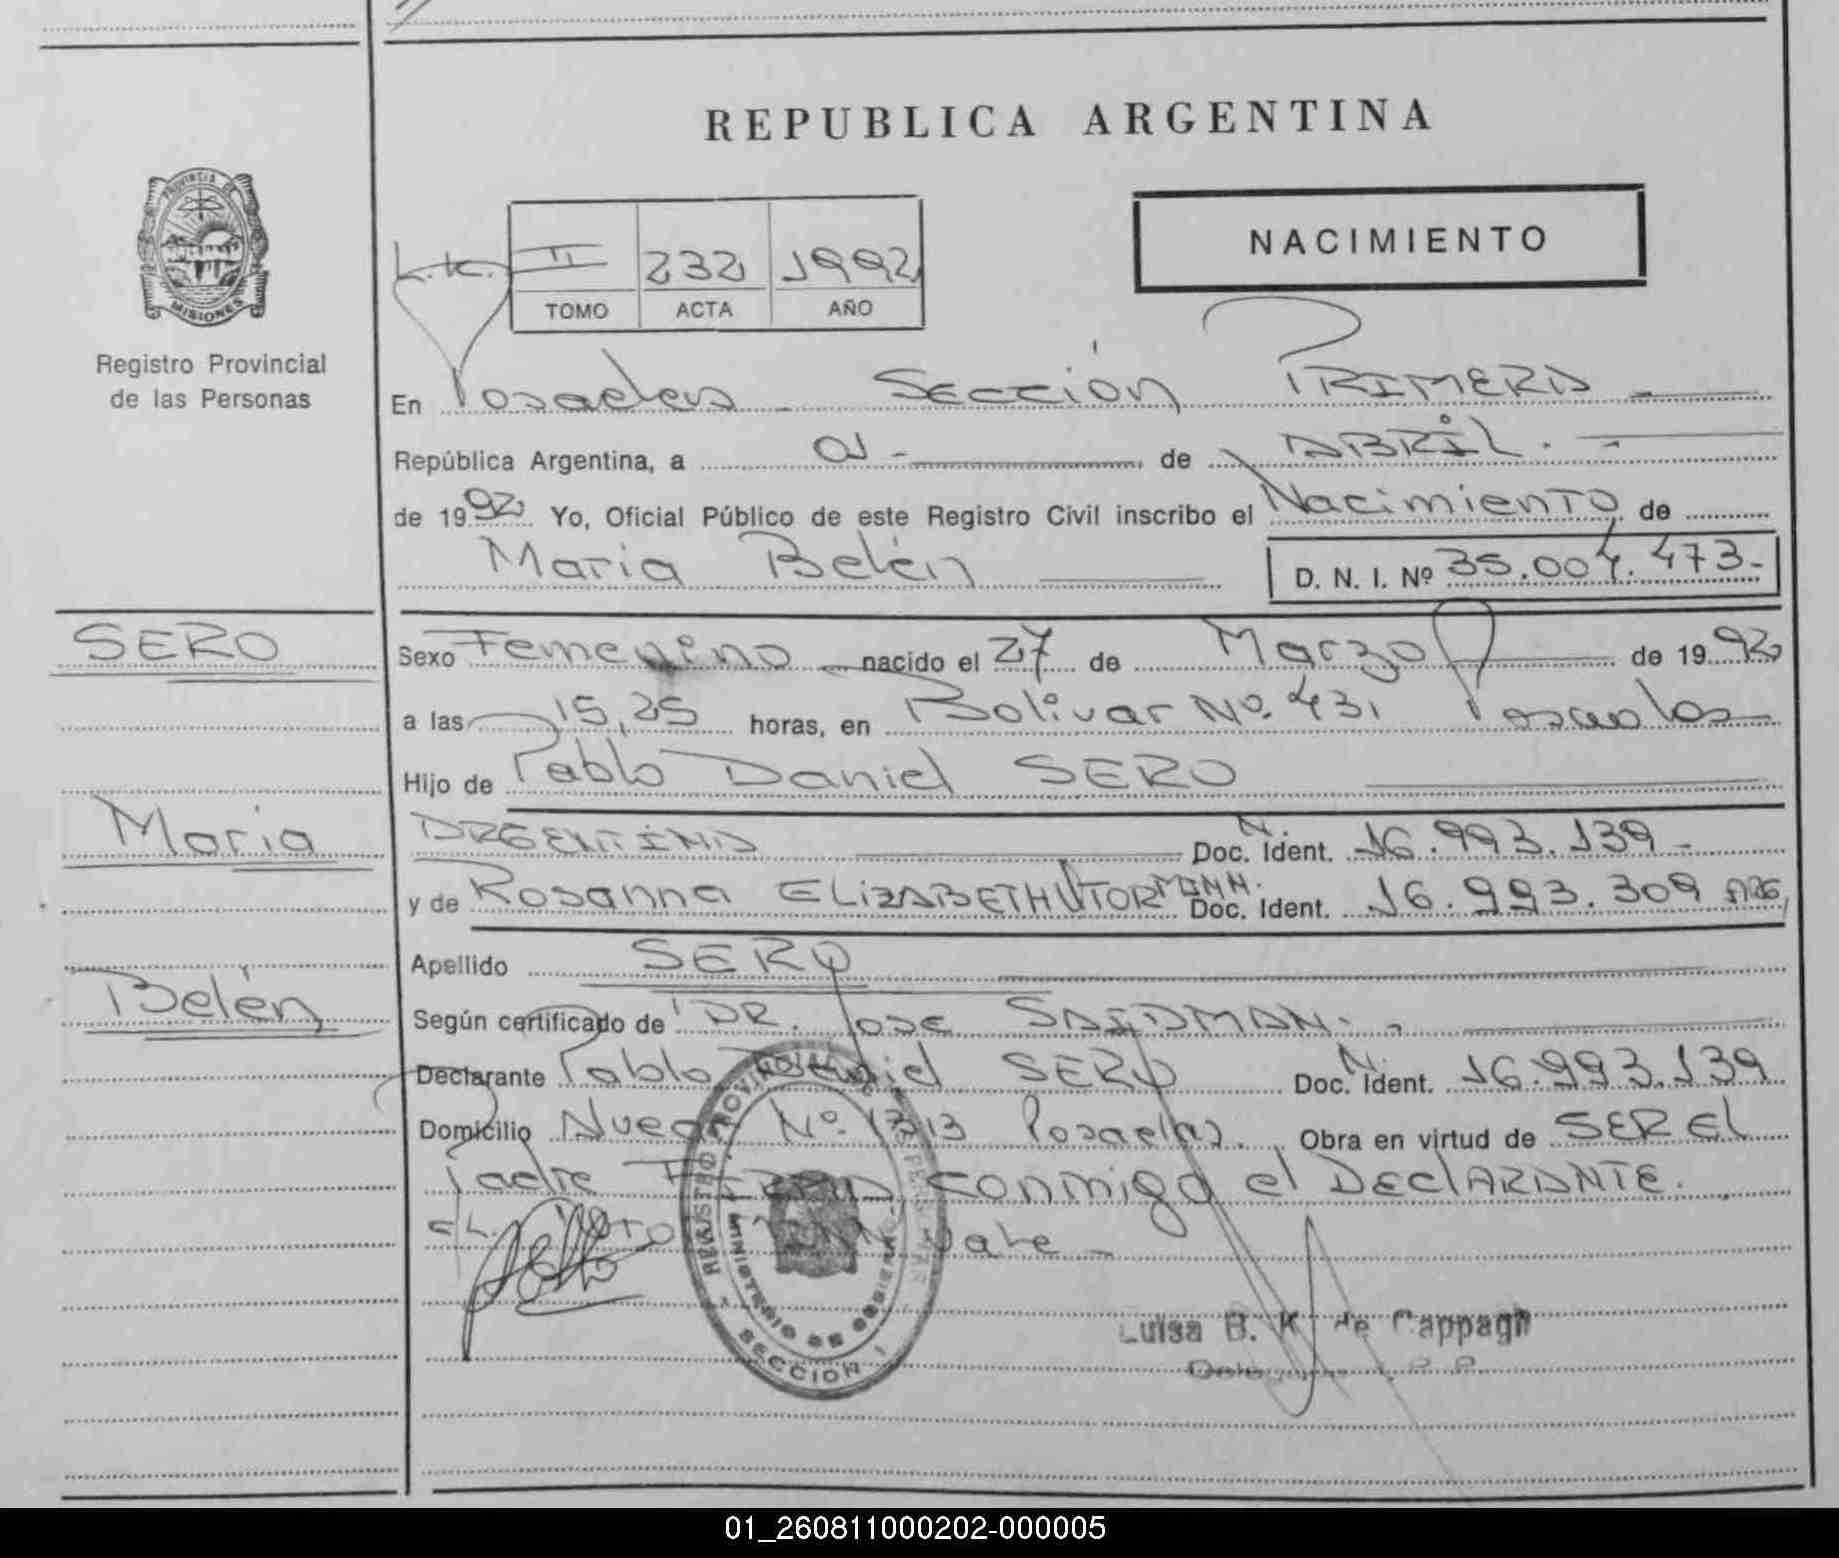 REPUBLICA ARGENTINA
PROVINCIA DE
MISIONES
Registro Provincial
de las Personas
L.K. II 232 1992
TOMO ACTA AÑO
NACIMIENTO
En Posadas - Sección PRIMERA
República Argentina, a 01 - de ABRIL.
de 1992 Yo, Oficial Público de este Registro Civil inscribo el Nacimiento de
Maria Belén D. N. I. Nº 35.004.473-
SERO
Maria
Belén
Sexo Femenino nacido el 27 de Marzo de 1992
a las 15,25 horas, en Bolivar Nº. 431 Posadas
Hijo de Pablo Daniel SERO
ARGENTINA Doc. N. Ident. 16.993.139-
y de Rosanna ELIZABETH Doc. Ident. 16.993.309 ARG
Apellido SERO
Según certificado de DR. Jose
Declarante Pablo Daniel SERO Doc. N. Ident. 16.993.139
Domicilio Nº. Posadas. Obra en virtud de SER El
Padre FIRMA conmigo el DEClARANTE.
Vale -
REGISTRO PROVINCIAL
MINISTERIO DE GOBIERNO
SECCION 1
Luisa B. K. de
01_260811000202-000005